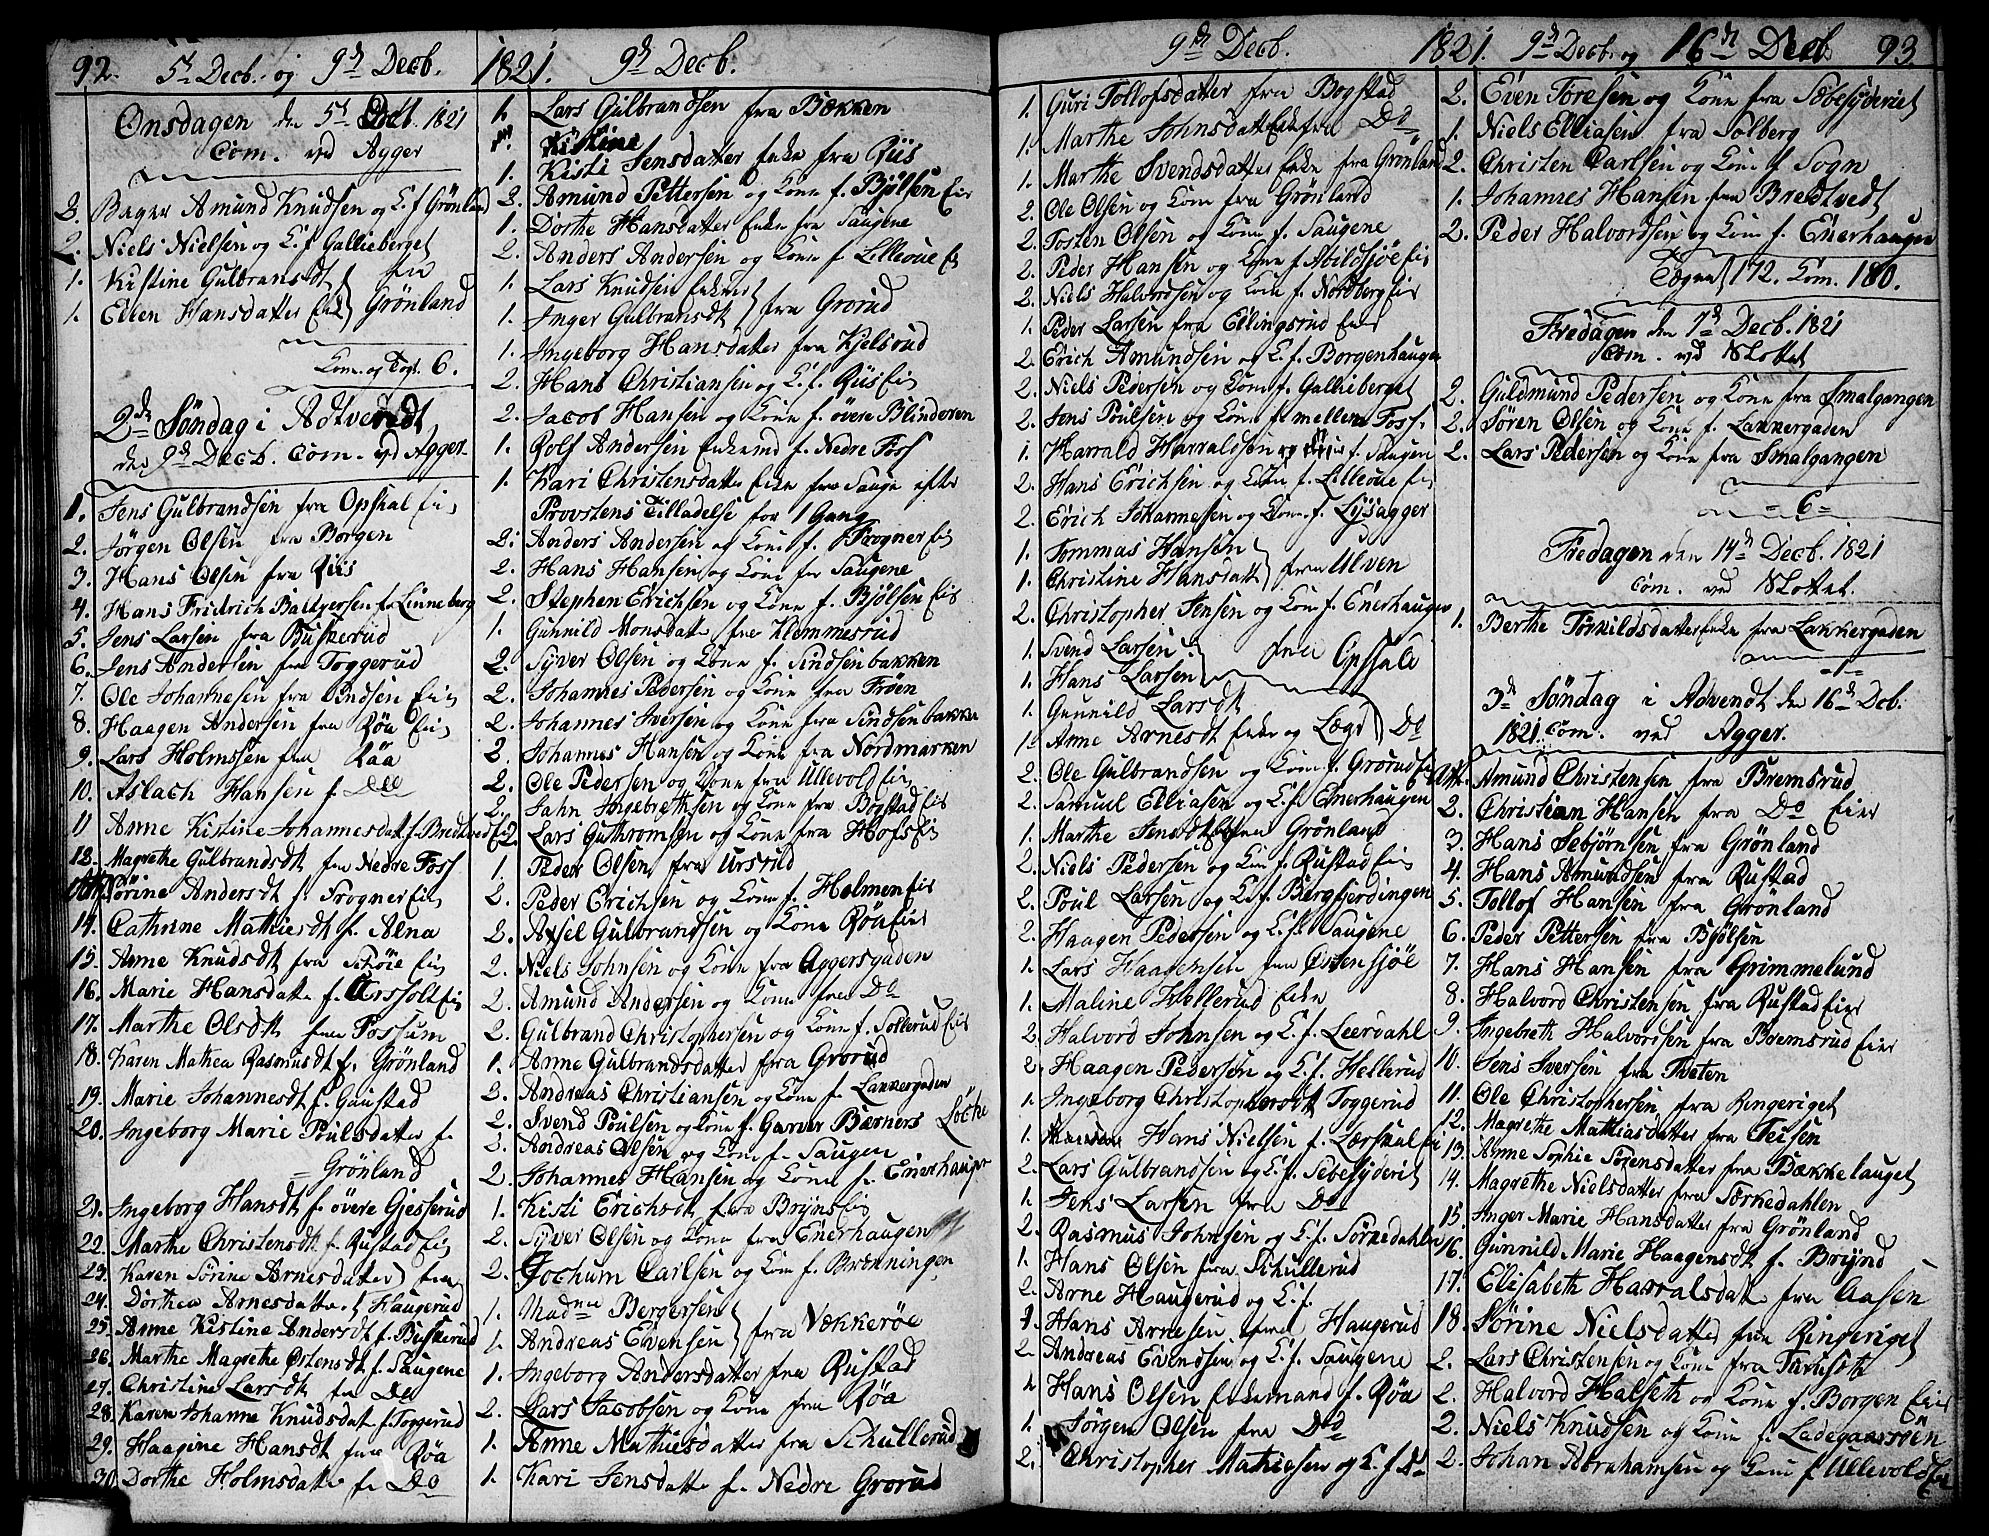 92. 5t Decb. og 9de Decb. 1821. 9de Decb.
Onsdagen den 5t Decb. 1821
Com. ved Agger
2. Bager Amund Knudsen og K. f Grönland
2. Niels Nielsen og K. f Gallieberget
1. Kistine Gulbransdt } fra
1. Ellen Hansdatter Enke } Grönland
Com. og Togt 6.
2de Söndag i Advendt
den 9de Decb. Com. ved Agger
1. Jens Gulbrandsen fra Opsahl Eie
2. Jörgen Olsen fra Borgen
3. Hans Olsen fra Riis
4. Hans Fridrich Baltzersen fr Linneberg
5. Jens Larsen fra Buskerud
6. Jens Andersen fra Toggerud
7. Ole Johannesen fra Eie
8. Haagen Andersen fra Röa Eie
9. Lars Holmssen fra Röa
10. Aslach Hansen f. Do
11 Anne Kistine Johannesdat. f. Bredtved Eie
12. Magrethe Gulbrandsdt fra Nedre Foss
Sörine Andersdt f. Frogner Eie
14. Cathrine Mathiesdt f. Alna
15. Anne Knudsdt fra Eie
16. Marie Hansdatter f. Eie
17. Marthe Olsdt fra Fossum
18. Karen Mathea Rasmusdt f. Grönland
19. Marie Johannesdt f. Gaustad
20. Ingeborg Marie Poulsdatter f.
= Grönland
21. Ingeborg Hansdt f. övere Gjesserud
22. Marthe Christensdt f. Rustad Eie
23. Karen Sörine Arnesdatter } fra
24. Dorthea Arnesdatter } Haugerud
25. Anne Kistine Andersdt f. Buskerud
26. Marthe Magrethe Östensdt f. Saugene
27. Christine Larsdt fra Do
28. Karen Johanne Knudsdat f. Toggerud
29. Haagine Hansdt fra Röa
30. Dorthe Holmsdatter f. Do
1. Lars Gulbrandsen fra Bækken
Kistine
1. Kisti Jensdatter Enke fra Riis
2. Amund Pettersen og Kone f. Bjölsen Eie
1. Dorthe Hansdatter Enke fra Saugene
2. Anders Andersen og Kone f Lilleoue Ei
1. Lars Knudsen Enkemd } fra Grorud
1. Inger Gulbransdt
1. Ingeborg Hansdatter fra Kjelsrud
2. Hans Christiansen og K. f. Riis Eie
2. Jacob Hansen og Kone f. övere Blinderen
1. Rolf Andersen Enkemd f. Nedre Foss
1. Kari Christensdatter Enke fra Sauge efter
Provstens Tilladelse for 1 Gang
2. Anders Andersen og Kone f. Frogner Ei
2. Hans Hansen og Kone fra Saugene
2. Stephen Erichsen og Kone f. Bjölsen Eie
1. Gunnild Monsdatter fra Klemmesrud
2. Syver Olsen og Kone f. Sindsenbakken
2. Johannes Pedersen og Kone fra Fröen
2. Johannes Iversen og Kone fra Sindsenbakke
2. Johannes Hansen og Kone fra Nordmarken
2. Ole Pedersen og Kone fra Ullevold Eie
2. Jahn Ingebrethsen og Kone fra Bogstad Eie
2. Lars Guthromsen og Kone fra Hofs Ei
1. Peder Olsen fra Ursrud
2. Peder Erichsen og Kone f. Holmen Eie
2. Axsel Gulbrandsen og Kone Röa Eie
2. Niels Johnsen og Kone fra Aggersgaden
2. Amund Andersen og Kone fra Do
2. Gulbrand Christophersen og Kone f. Sollerud Eie
1. Anne Gulbrandsdatter fra Grorud
2. Andreas Christiansen og Kone f. Lakkergaden
2. Svend Poulsen og Kone f. Garver Bærners Löcke
2. Andreas Olsen og Kone f. Saugen
2. Johannes Hansen og Kone f. Enerhaugen
1. Kisti Erichsdt fra Bryns Eie
2. Syver Olsen og Kone fra Enerhaugen
2. Jochum Carlsen og Kone f. Brænningen
1. Madme Bergersen } fra Vækkeröe
1. Andreas Evensen
1. Ingeborg Andersdatter fra Rustad
2. Lars Jacobsen og Kone fra Röa
1. Anne Mathiesdatter fra Skullerud
1. Kari Jensdatter f. Nedre Grorud
9de Decb. 1821. 9de Decb. og 16de Decb 93.
1. Guri Tollofsdatter fra Bogstad
1. Marthe Johnsdatter Enke fra Do
1. Marthe Svendsdatter Enke fra Grönland
2. Ole Olsen og Kone fra Grönland
2. Tosten Olsen og Kone f. Saugene
2. Peder Hansen og Kone f. Abildsjöe Eie
2. Niels Halvordsen og Kone f. Nordberg Eie
1. Peder Larsen fra Ellingsrud Eie
2. Erich Amundsen og K. f. Borgenhaugen
2. Niels Pedersen og Kone f. Gallieberget
2. Jens Poulsen og Kone f mellem Foss.
1. Harrald Harraldsen f. Saugen
2. Hans Erichsen og Kone f. Lilleoue Eie
2. Erich Johannesen og Kone f. Lysagger
1. Tommas Hansen } fra Ulven
1. Christine Hansdatter
2. Christopher Jensen og Kone f. Enerhaugen
1. Svend Larsen } fra Opsahl
1. Hans Larsen
1. Gunnild Larsdt
1. Anne Arnesdt Enke og Lægd } Do
2. Ole Gulbrandsen og Kone f. Grorud Eie
2. Samuel Elliasen og K. f. Enerhaugen
1. Marthe Jensdt Grönland
2. Niels Pedersen og Kone f. Rustad Eie
2. Poul Larsen og K. f. Bergfjerdingen
2. Haagen Pedersen og K. f. Saugene
1. Lars Haagensen fra Östensjöe
1. Maline Hellerud Enke
2. Halvord Johnsen og K. f. Leerdahl
2. Haagen Pedersen og K. f. Hellerud
1. Ingeborg Christophersdt Toggerud
1. Hans Nielsen f. Eie
2. Lars Gulbrandsen og K. f. Sebesyderiet
1. Jens Larsen fra Do
2. Rasmus Johnsen og K. f. Sörkedahlen
1. Hans Olsen fra Skullerud
2. Arne Haugerud og K. f.
1. Hans Arnesen fra Haugerud
2. Andreas Evendsen og K. f. Saugene
1 Hans Olsen Enkemand f. Röa
1. Jörgen Olsen fra Do
2. Christopher Mathiesen og K. f Do
2. Even Toresen og Kone fra Sebesyderiet
1. Niels Elliasen fra Solberg
2. Christen Carlsen og Kone f Sogn
1. Johannes Hansen fra Bredtvedt
2. Peder Halvordsen og Kone f. Enerhaugen
Togna 172. Com. 180.
Fredagen den 7de Decb. 1821
Com. ved Slottet
2. Guldmund Pedersen og Kone fra Smalgangen
2. Sören Olsen og Kone f. Lakkergaden
2. Lars Pedersen og Kone fra Smalgangen
= 6 =
Fredagen den 14de Decb. 1821
Com. ved Slottet.
1. Berthe Törkildsdatter Enke fra Lakkergaden
- 1 -
3de Söndag i Advendt den 16de Decb.
1821. Com. ved Agger.
Amund Christensen fra Bremsrud
2. Christian Hansen fra Do Eier
3. Hans Sebjörnsen fra Grönland
4. Hans Amundsen fra Rustad
5. Tollof Hansen fra Grönland
6. Peder Pettersen fra Bjölsen
7. Hans Hansen fra Grimmelund
8. Halvord Christensen fra Rustad Eier
9. Ingebreth Halvordsen fra Bremsrud Eier
10. Jens Iversen fra Tveten
11. Ole Christophersen fra Ringeriget
12. Magrethe Mathiasdatter fra Teisen
13. Anne Sophie Sörensdatter fra Bækkelauget
14. Magrethe Nielsdatter fra Sörkedahlen
15. Inger Marie Hansdatter fra Grönland
16. Gunnild Marie Haagensdt f. Brynd
17. Elisabeth Harralsdatter fra Aasen
18. Sörine Nielsdatter fra Ringeriget
2. Lars Christensen og Kone fra
2. Halvord Halseth og Kone f. Borgen Eie
2. Niels Knudsen og Kone f. Ladegaardsöen
2. Johan Abrahamsen og Kone f Ullevold Eie